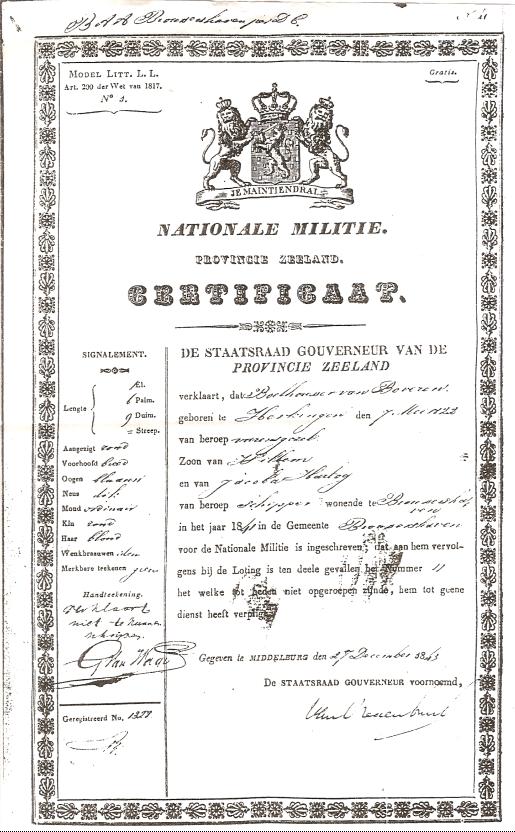 MODEL LITT. L. L.
Art. 200 der Wet van 1817.
N° 3.
Gratis.
JE MAINTIENDRAI
NATIONALE MILITIE.
PROVINCIE ZEELAND.
CERTIFICAAT.
SIGNALEMENT.
Lengte
El.
6 Palm.
9 Duim.
= Streep.
Aangezigt rond
Voorhoofd breed
Oogen blaauw
Neus dik
Mond ordinair
Kin rond
Haar blond
Wenkbraauwen idem
Merkbare teekenen geen
Handteekening.
verklaart
niet te kunnen
schrijven.
Geregistreerd No. 1328
DE STAATSRAAD GOUVERNEUR VAN DE
PROVINCIE ZEELAND
verklaart, dat Boelhouwer van Beveren
geboren te Herkingen den 7 Mei 1822
van beroep
Zoon van Willem
en van Jacoba Hartog
van beroep Schipper wonende te Brouwersha
ven
in het jaar 1841 in de Gemeente Brouwershaven
voor de Nationale Militie is ingeschreven; dat aan hem vervol-
gens bij de Loting is ten deele gevallen het Nummer 11
het welke tot heden niet opgeroepen zijnde, hem tot geene
dienst heeft verpligt.
Gegeven te MIDDELBURG den 27 December 1843
De STAATSRAAD GOUVERNEUR voornoemd,